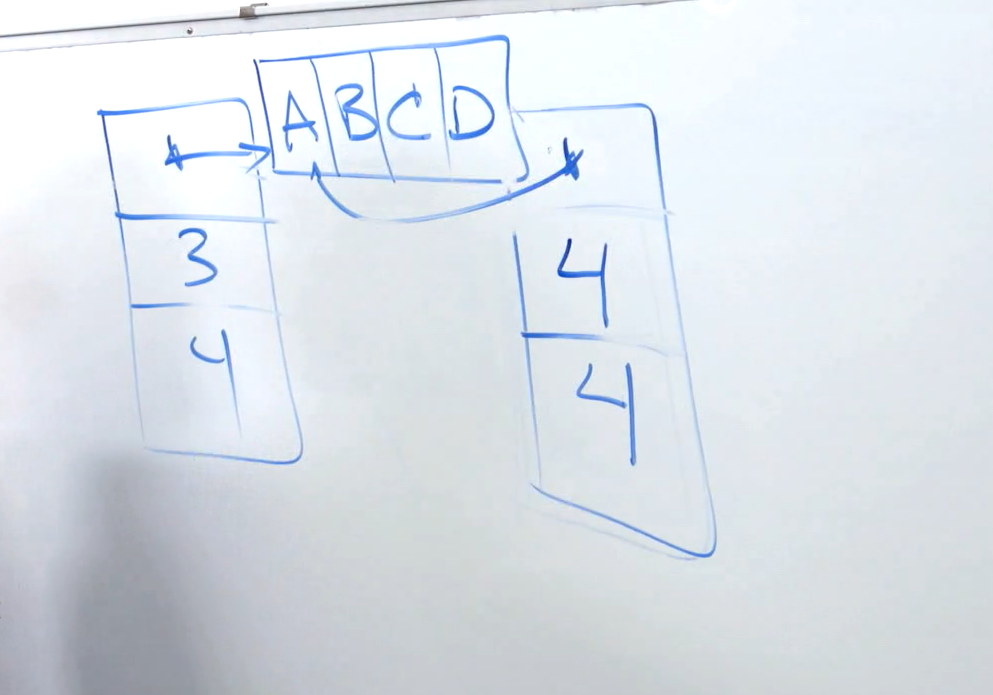 A B C D
* *
3 4
4 4